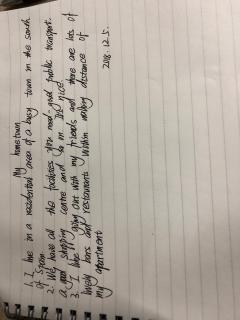 My hometown
1. I live in a residential area of a busy town in the south
of Spain
2. We have all the facilities you need-good public transport.
a good shopping centre and so on. It's nice
3. I like going out with my friends and there are lots of
lovely bars and restaurants within walking distance of
my apartment
2018.12.5.